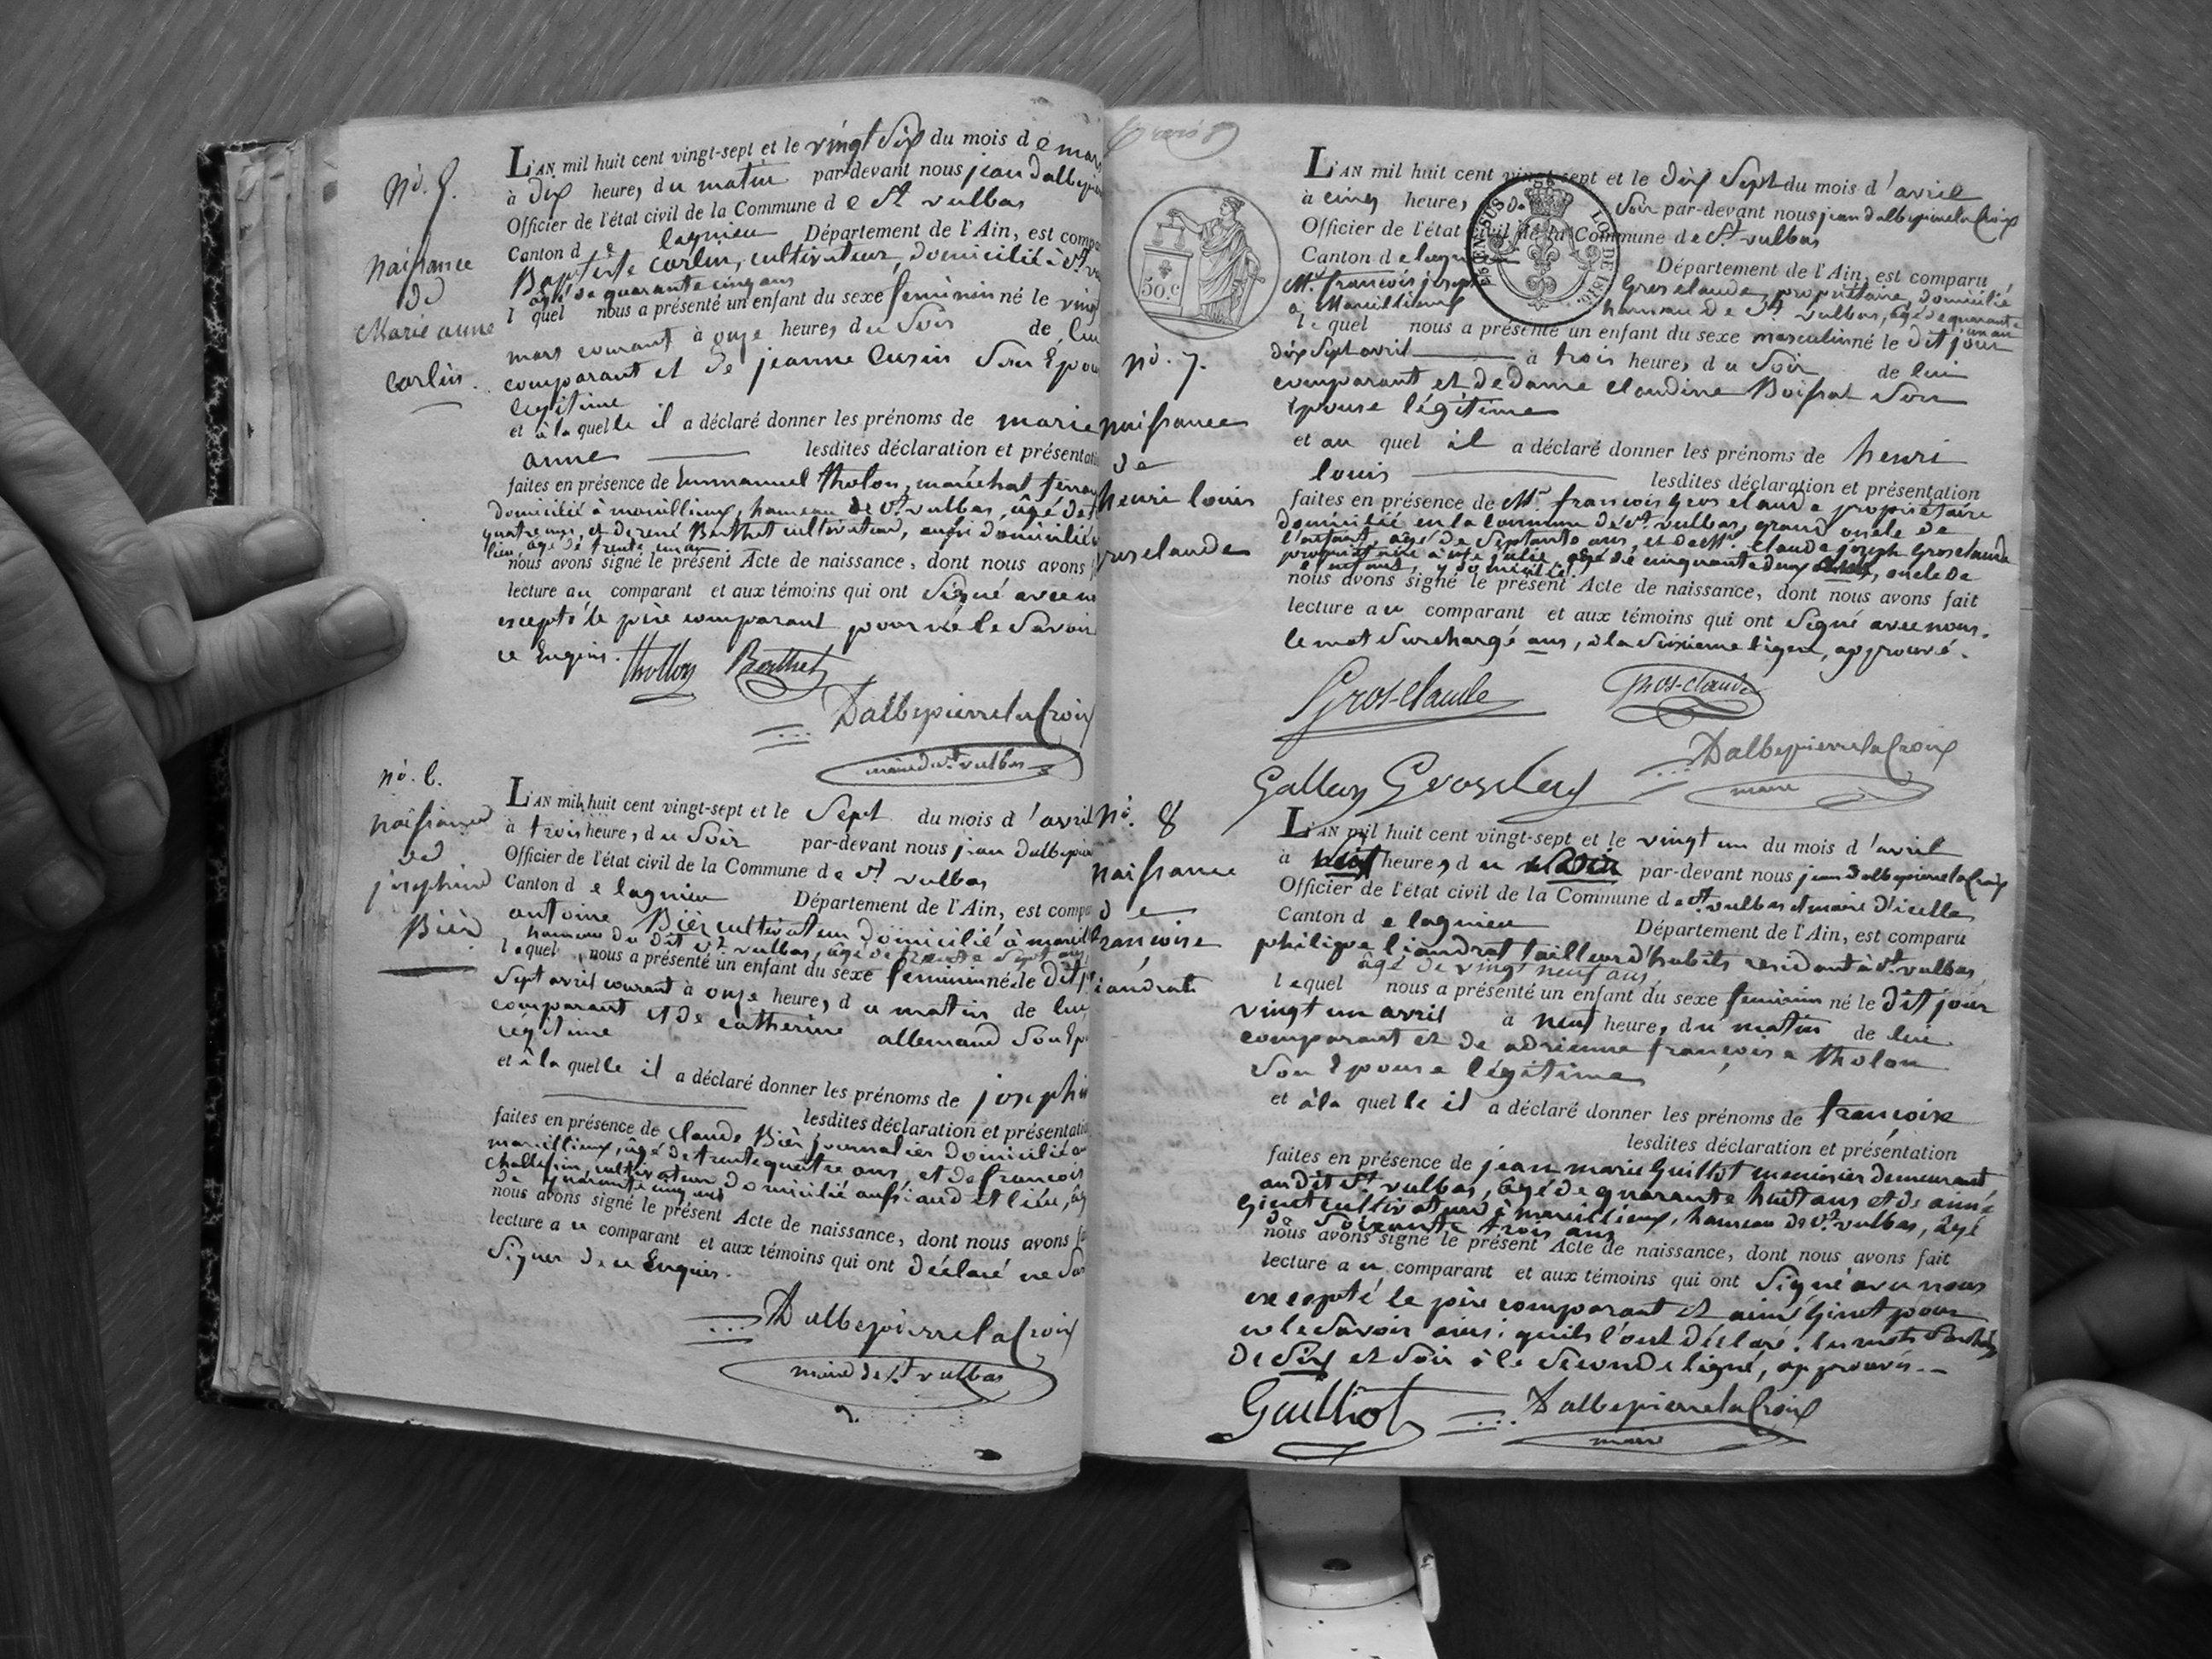 nô. 5.
naissance
de
Marie anne
Carlin.
L'AN mil huit cent vingt-sept et le vingt six du mois de mars
à dix heures du matin par-devant nous jean dalbepierre
Officier de l'état civil de la Commune de St vulbas
Canton de lagnieu Département de l'Ain, est comparu
Baptiste Carlin, cultivateur, domicilié à St
âgé de quarante cinq ans
lequel nous a présenté un enfant du sexe feminin né le vingt
mars courant à onze heures du soir de lui
comparant et de jeanne Cusin son Epouse
légitime
et à laquelle il a déclaré donner les prénoms de marie
anne lesdites déclaration et présentation
faites en présence de Emmanuel tholon, maréchal ferrant
domicilié à marcillieux, hameau de St. vulbas, âgé de
quatre ans, et de rené Berthet cultivateur, aussi domicilié
lieu, âgé de trente un ans
nous avons signé le présent Acte de naissance, dont nous avons
lecture au comparant et aux témoins qui ont signé avec nous
excepté le père comparant pour ne le savoir
ce Enquis.
thollon Berthet
Dalbepierrelacroix
maire de St. vulbas
nô. 6.
naissance
de
josephine
Bièr
L'AN mil huit cent vingt-sept et le sept du mois d'avril
à trois heures du soir par-devant nous jean dalbepierre
Officier de l'état civil de la Commune de St. vulbas
Canton de lagnieu Département de l'Ain, est comparu
antoine Bièr cultivateur domicilié à marcillieux
hameau du dit St. vulbas, âgé de trente sept ans
lequel nous a présenté un enfant du sexe feminin né le dit jour
sept avril courant à onze heures du matin de lui
comparant et de catherine allemand son Epouse
légitime
et à laquelle il a déclaré donner les prénoms de josephine
lesdites déclaration et présentation
faites en présence de claude Bièr journalier domicilié au
marcillieux, âgé de trente quatre ans, et de francois
cultivateur domicilié aussi aud et lieu, âgé
de quarante cinq ans
nous avons signé le présent Acte de naissance, dont nous avons
lecture au comparant et aux témoins qui ont déclaré ne savoir
signer de ce Enquis.
Dalbepierrelacroix
maire de St. vulbas
50.c
LOI DE 1816.
nô. 7.
naissance
de
henri louis
groselaude
L'AN mil huit cent vingt-sept et le dix sept du mois d'avril
à cinq heures du soir par-devant nous jean dalbepierrelacroix
Officier de l'état civil de la Commune de St. vulbas
Canton de lagnieu Département de l'Ain, est comparu
Mr. francois joseph Groselaude, propriétaire, domicilié
à Marcillieux hameau de St vulbas, âgé de quarante
un ans
lequel nous a présenté un enfant du sexe masculin né le dit jour
dix sept avril à trois heures du soir de lui
comparant et de dame claudine Boissat son
Epouse légitime
et au quel il a déclaré donner les prénoms de henri
louis lesdites déclaration et présentation
faites en présence de Mr. francois Gros claude propriétaire
domicilié en la commune de St. vulbas, grand oncle de
l'enfant, âgé de septante ans, et de Mr. claude joseph Grosclaude
propriétaire à ste julie, âgé de cinquante deux ans, oncle de
l'enfant, y domicilié
nous avons signé le présent Acte de naissance, dont nous avons fait
lecture au comparant et aux témoins qui ont signé avec nous.
le mot surchargé ans, à la sixieme ligne, approuvé.
Gros-Claude Gros-claude
Dalbepierrelacroix
maire
nô. 8
naissance
de
francoise
liandrat
L'AN mil huit cent vingt-sept et le vingt un du mois d'avril
à six heures du soir par-devant nous jean dalbepierrelacroix
Officier de l'état civil de la Commune de St. vulbas et maire d'icelle
Canton de lagnieu Département de l'Ain, est comparu
philippe liandrat tailleur d'habits residant à St. vulbas
âgé de vingt neuf ans,
lequel nous a présenté un enfant du sexe feminin né le dit jour
vingt un avril à neuf heures du matin de lui
comparant et de adrienne françoise tholon
son Epouse légitime
et à la quelle il a déclaré donner les prénoms de françoise
lesdites déclaration et présentation
faites en présence de jean marie Guillot menuisier demeurant
audit St. vulbas, âgé de quarante huit ans et de aimé
Ginet cultivateur à marcillieux, hameau de St. vulbas, âgé
de soixante trois ans
nous avons signé le présent Acte de naissance, dont nous avons fait
lecture au comparant et aux témoins qui ont signé avec nous
excepté le père comparant et aimé Ginet pour
ne le savoir ainsi quils l'ont déclaré. les mots
de six et soir à la seconde ligne, approuvés.
Guilliot Dalbepierrelacroix
maire